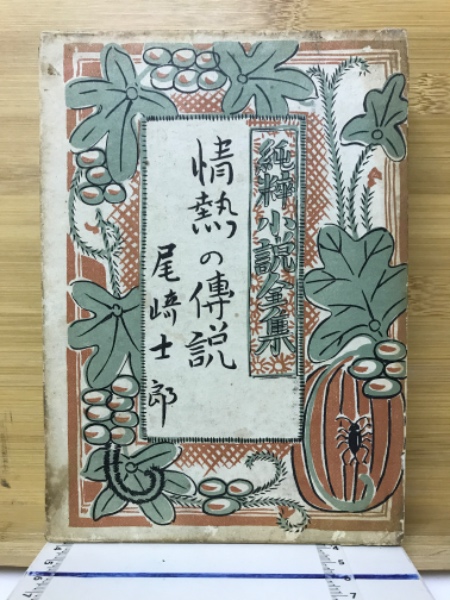 純粋小説全集
情熱の傳説
尾崎士郎